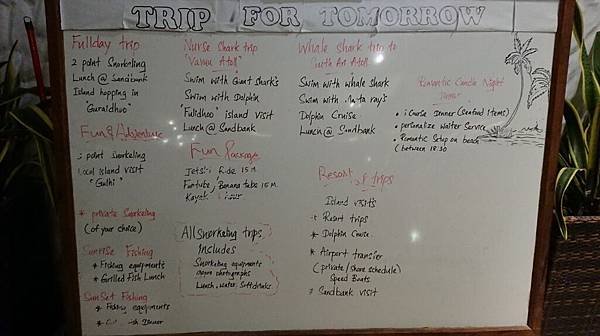 TRIP FOR TOMORROW
Fullday trip
2 point Snorkeling
Lunch @ Sandbank
Island hopping in
"Guraidhoo"
Fun & Adventure
point snorkeling
Local island visit
"Gulhi"
* private Snorkeling
(of your choice)
Sunrise Fishing
* Fishing equipments
* Grilled Fish Lunch
SunSet Fishing
* Fishing equipments
Dinner
Nurse Shark trip
"Vaavu Atoll"
Swim with Giant Shark's
Swim with Dolphin
"Fulidhoo" island visit
Lunch @ Sandbank
Fun Package
Jetski Ride 15 M
Funtube, Banana tube 15 M.
Kayak
All Snorkeling trips
includes
Snorkeling equipments
photographs
Lunch, water, Softdrinks
Whale Shark trip to
South Ari Atoll
Swim with whale shark
Swim with Manta ray's
Dolphin Cruise
Lunch @ Sandbank
Resort trips
Island visits
* Resort trips
* Dolphin Cruise
* Airport transfer
(private/share schedule)
Speed Boats
* Sandbank visit
Romantic Candle Night
Course Dinner (Seafood items)
• personalize Waiter Service
• Romantic Setup on beach
(between 18:30